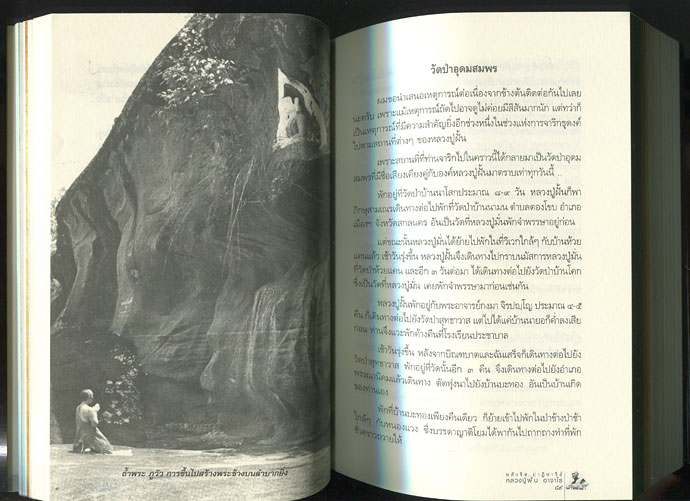 ถ้ำพระ ภูวัว การขึ้นไปสร้างพระข้างบนลำบากยิ่ง
วัดป่าอุดมสมพร
ผมขอนำเสนอเหตุการณ์ต่อเนื่องจากข้างต้นติดต่อกันไปเลย
นะครับ เพราะแม้เหตุการณ์ถัดไปอาจดูไม่ค่อยมีสีสันมากนัก แต่ทว่าก็
เป็นเหตุการณ์ที่มีความสำคัญยิ่งอีกช่วงหนึ่งในช่วงแห่งการจาริกธุดงค์
ไปตามสถานที่ต่างๆ ของหลวงปู่ฝั้น
เพราะสถานที่ที่ท่านจาริกไปในคราวนี้ได้กลายมาเป็นวัดป่าอุดม
สมพรที่มีชื่อเสียงเคียงคู่กับองค์หลวงปู่ฝั้นมาตราบเท่าทุกวันนี้ ..
พักอยู่ที่วัดป่าบ้านนาโสกประมาณ ๘-๙ วัน หลวงปู่ฝั้นก็พา
ภิกษุสามเณรเดินทางต่อไปพักที่วัดป่าบ้านนามน ตำบลตองโขบ อำเภอ
เมืองฯ จังหวัดสกลนคร อันเป็นวัดที่หลวงปู่มั่นพักจำพรรษาอยู่ก่อน
แต่ขณะนั้นหลวงปู่มั่นได้ย้ายไปพักในที่วิเวกใกล้ๆ กับบ้านห้วย
แคนแล้ว เช้าวันรุ่งขึ้น หลวงปู่ฝั้นจึงเดินทางไปกราบนมัสการหลวงปู่มั่น
ที่วัดป่าห้วยแคน และอีก ๓ วันต่อมา ได้เดินทางต่อไปยังวัดป่าบ้านโคก
ซึ่งเป็นวัดที่หลวงปู่มั่น เคยพักจำพรรษามาก่อนเช่นกัน
หลวงปู่ฝั้นพักอยู่กับพระอาจารย์กงมา จิรปุญฺโญ ประมาณ ๔-๕
คืน ก็เดินทางต่อไปยังวัดป่าสุทธาวาส แต่ไปได้แค่บ้านนายอก็ค่ำลงเสีย
ก่อน ท่านจึงแวะพักค้างคืนที่โรงเรียนประชาบาล
เช้าวันรุ่งขึ้น หลังจากบิณฑบาตและฉันเสร็จก็เดินทางต่อไปยัง
วัดป่าสุทธาวาส พักอยู่ที่วัดนั้นอีก ๓ คืน จึงเดินทางต่อไปยังอำเภอ
พรรณานิคมแล้วเดินทาง ตัดทุ่งนาไปยังบ้านบะทอง อันเป็นบ้านเกิด
ของท่านเอง
พักที่บ้านบะทองเพียงคืนเดียว ก็ย้ายเข้าไปพักในป่าช้าป่าช้า
ใกล้ๆ กับหนองแวง ซึ่งบรรดาญาติโยมได้พากันไปถากถางทำที่พัก
ชั่วคราวถวายให้
หลวงปู่ฝั้น อาจาโร